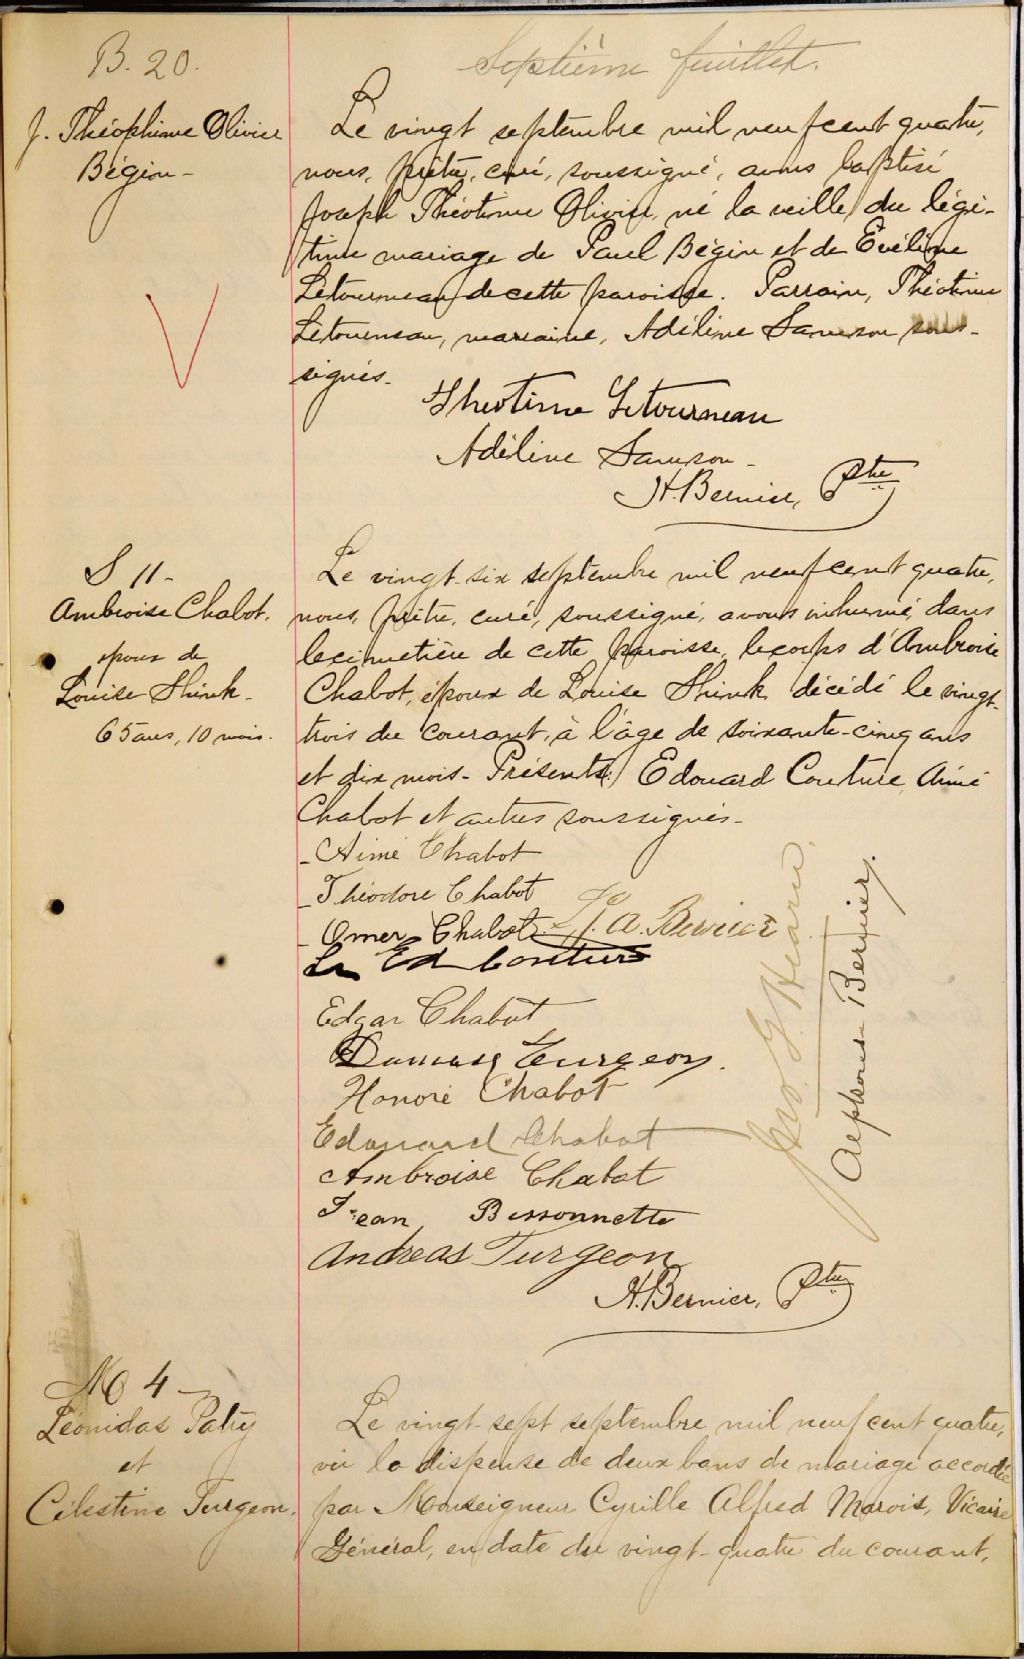 Septième feuillet.
B. 20.
J. Théophime Olivier
Bégin -
Le vingt septembre mil neuf cent quatre,
nous, prêtre, curé, soussigné, avons baptisé
Joseph Théotime Olivier, né la veille du légi-
time mariage de Paul Bégin et de Evéline
Létourneau de cette paroisse. Parrain, Théotime
Létourneau, marraine, Adéline Samson sous-
signés.
Theotime Letourneau
Adéline Samson -
H. Bernier, Ptre
S 11 -
Ambroise Chabot.
époux de
Louise Shink -
65 ans, 10 mois.
Le vingt-six septembre mil neuf cent quatre,
nous, prêtre, curé, soussigné, avons inhumé, dans
le cimetière de cette paroisse, le corps d'Ambroise
Chabot, époux de Louise Shink, décédé le vingt-
trois du courant, à l'âge de soixante-cinq ans
et dix mois - Présents: Edouard Couture, Aimé
Chabot et autres soussignés -
- Aimé Chabot
- Théodore Chabot
- Omer Chabot J. A. Bernier
Ed Couture
Edgar Chabot
Damase Turgeon.
Honoré Chabot
Edouard Chabot
Ambroise Chabot
Jean Bissonnette
Andreas Turgeon
Jno. G Hearn
Alphonse Bernier.
H. Bernier, Ptre
M 4 -
Léonidas Patry
et
Célestine Turgeon.
Le vingt-sept septembre mil neuf cent quatre,
vu la dispense de deux bans de mariage accordée
par Monseigneur Cyrille Alfred Marois, Vicaire
Général, en date du vingt-quatre du courant,